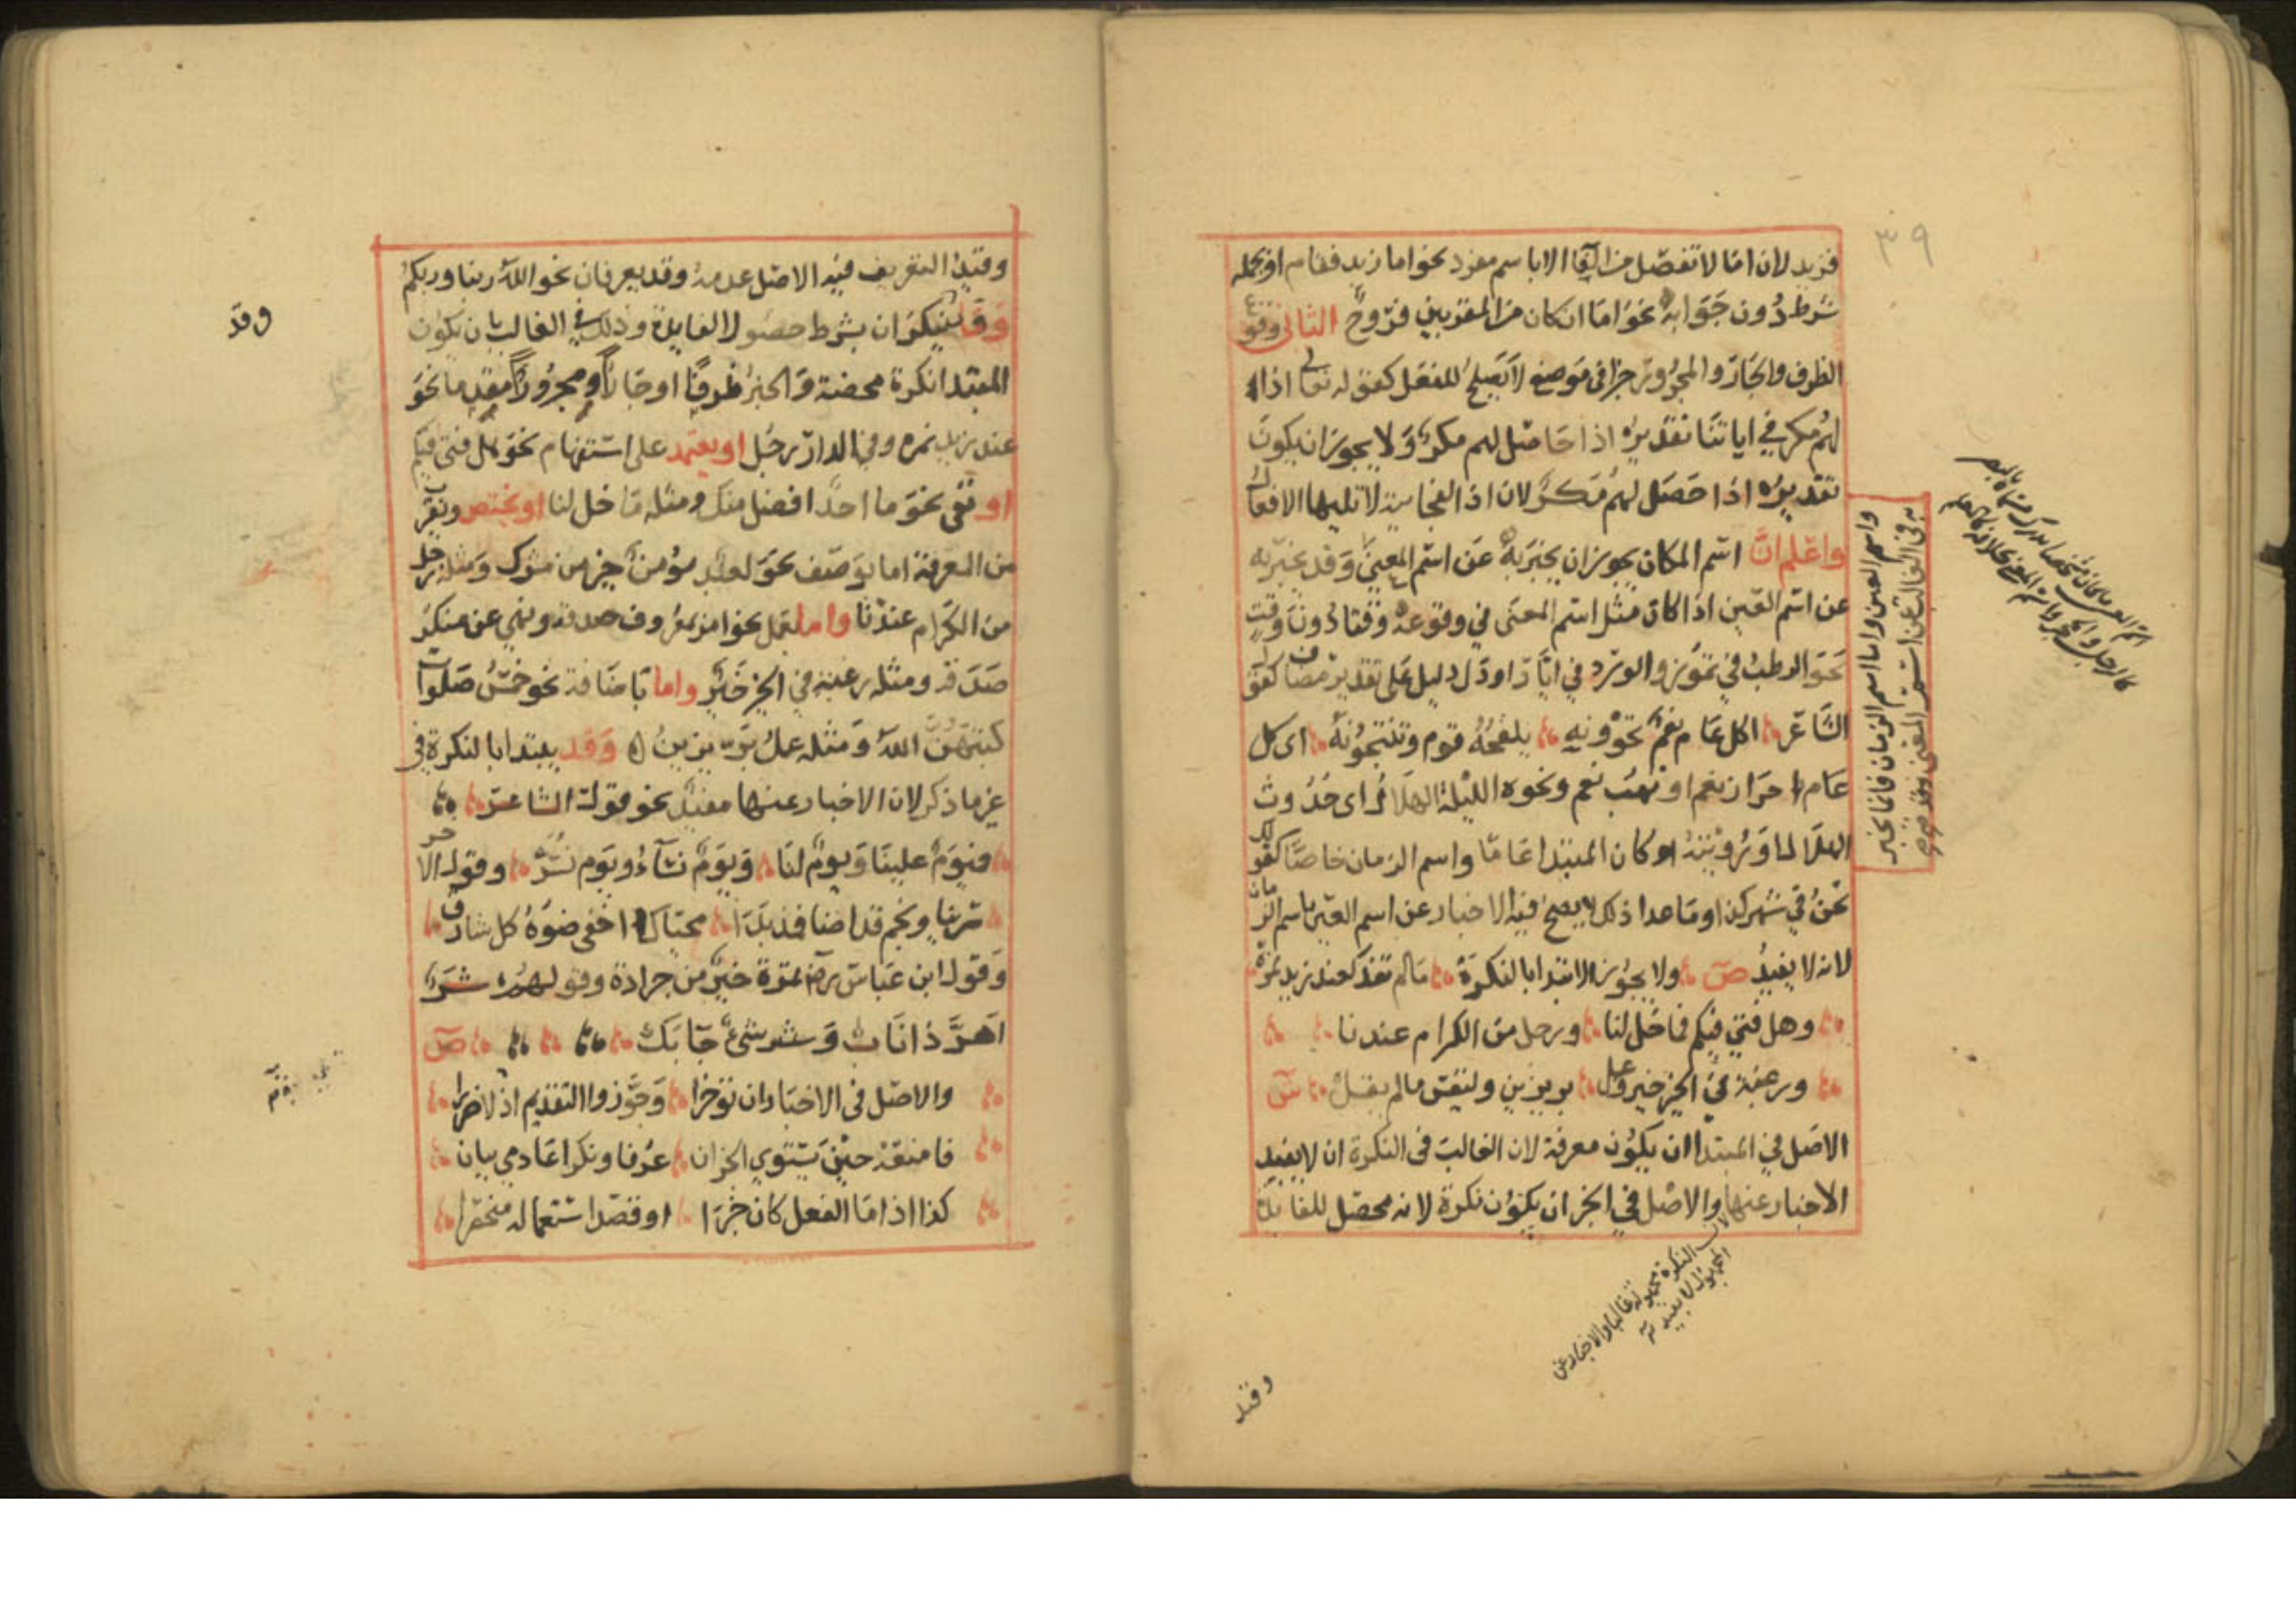 ٣٩
فزيد لان اما لا تفصل من الفا الا باسم مفرد نحو اما زيد فقام او بجملة
شرط دون جوابه نحو اما ان كان من المقربين فروح الثاني وقوع
الظرف والجار والمجرور خبرا في موضع لا يصلح للفعل كقوله تعالى اذا
لهم مكر في اياتنا تقديره اذا حاصل لهم مكر ولا يجوز ان يكون
تقديره اذا حصل لهم مكر لان اذا الفجاية لا تليها الافعال
واعلم ان اسم المكان يجوز ان يخبر به عن اسم المعنى وقد يخبر به
عن اسم العين اذا كان مثل اسم المعنى في وقوعه وقتا دون وقت
نحو الرطب في تموز والورد في ايار او دل دليل على تقدير مضاف كقول
الشاعر اكل عام نعم تحوونه يلقحه قوم وتنتجونه اى كل
عام احراز نعم او نهب نعم ونحوه الليلة الهلال اى حدوث
الهلال او رؤيته او كان المبتدا عاما واسم الزمان خاصا كقولك
نحن في شهر كذا وما عدا ذلك لا يصح فيه الاخبار عن اسم العين باسم الزمان
لانه لا يفيد ص ولا يجوز الابتدا بالنكرة ما لم تفد كعند زيد نمرة
وهل فتى فيكم فما خل لنا ورجل من الكرام عندنا
ورغبة في الخير خير وعمل بر يزين وليقس ما لم يقل ش
الاصل في المبتدا ان يكون معرفة لان الغالب في النكرة ان لا يفيد
الاخبار عنها والاصل في الخبر ان يكون نكرة لانه محصل للفايدة
واسم العين واما اسم الزمان فانما يخبر
به في الغالب عن اسم المعنى
لان النكرة مجهولة غالبا والاخبار عن
المجهول لا يفيد
وقيد
وقيد التعريف فيه الاصل عدمه وقد يعرفان نحو الله ربنا وربكم
وقد ينكران بشرط حصول الفايدة وذلك في الغالب بان يكون
المبتدا نكرة محضة والخبر ظرفا او جارا ومجرورا مقدما نحو
عند زيد نمرة وفي الدار رجل او يعتمد على استفهام نحو هل فتى فيكم
او نفى نحو ما احد افضل منك ومثله ما خل لنا او يختص ويقرب
من المعرفة اما بوصف نحو لعبد مؤمن خير من مشرك ومثله رجل
من الكرام عندنا واما بعمل نحو امر بمعروف صدقة ونهي عن منكر
صدقة ومثله رغبة في الخير خير واما باضافة نحو خمس صلوات
كتبهن الله ومثله عمل بر يزين وقد يبتدا بالنكرة في
غير ما ذكر لان الاخبار عنها مفيد نحو قول الشاعر
فيوم علينا ويوم لنا ويوم نساء ويوم نسر وقول الاخر
سرينا ونجم قد اضا فمذ بدا محياك اخفى ضوءه كل شارق
وقول ابن عباس رضي تمرة خير من جرادة وقولهم شر
اهر ذا ناب وشر شئ جا بك ص
والاصل في الاخبار ان توخرا وجوزوا التقديم اذ لا ضررا
فامنعه حين يستوي الجزان عرفا ونكرا عادمي بيان
كذا اذا ما الفعل كان خبرا او قصد استعماله منحصرا
وقد